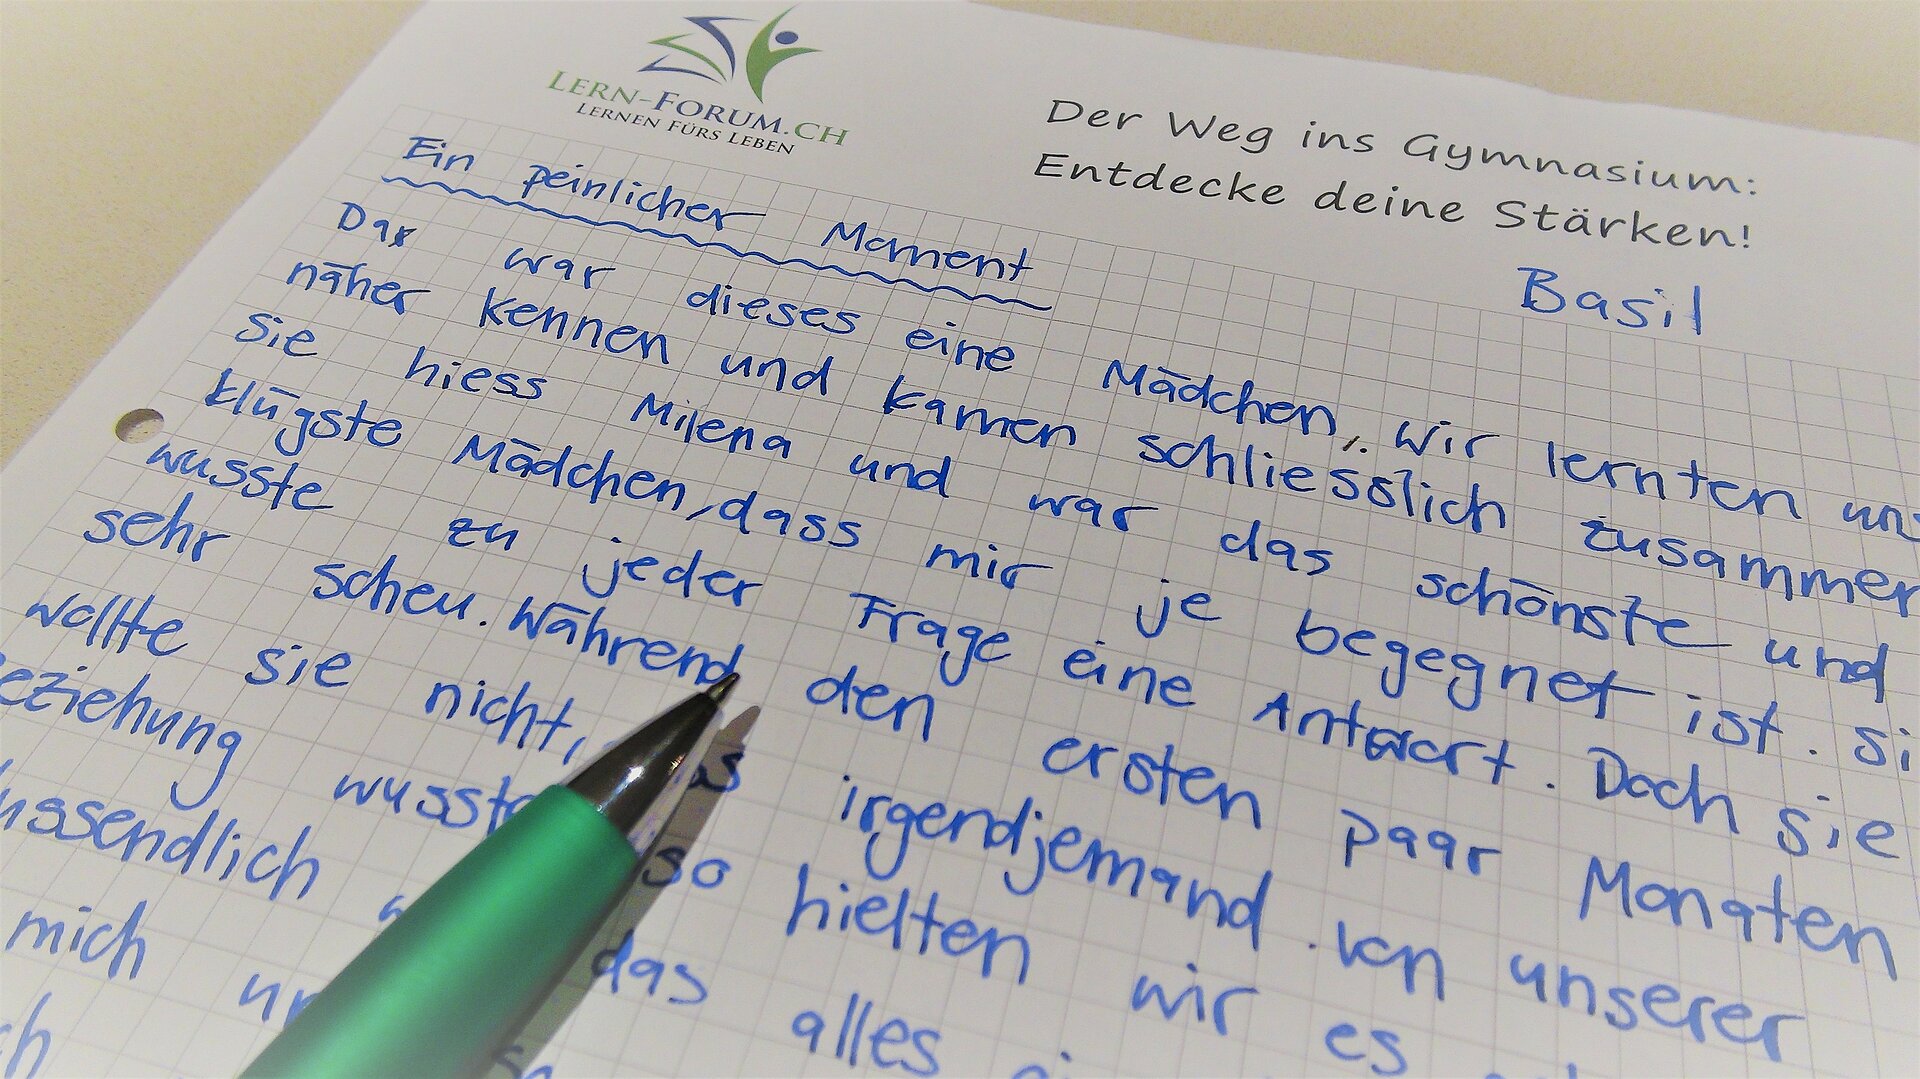 LERN-FORUM.CH
LERNEN FÜRS LEBEN
Der Weg ins Gymnasium:
Entdecke deine Stärken!
Basil
Ein peinlicher Moment
Da war dieses eine Mädchen, wir lernten uns
näher kennen und kamen schliesslich zusammen
Sie hiess Milena und war das schönste und
klügste Mädchen, dass mir je begegnet ist. Si
wusste zu jeder Frage eine Antwort. Doch sie
sehr scheu. Während den ersten paar Monaten
wollte sie nicht, irgendjemand von unserer
eziehung wusste so hielten wir es
ussendlich das alles
mich
ch